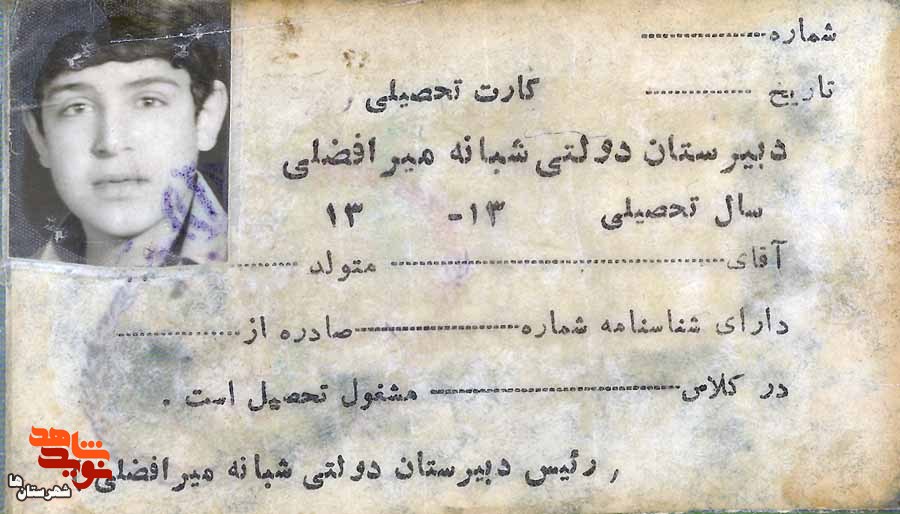 شماره
تاریخ
کارت تحصیلی
دبیرستان دولتی شبانه میر افضلی
سال تحصیلی ۱۳- ۱۳
آقای متولد
دارای شناسنامه شماره صادره از
در کلاس مشغول تحصیل است .
رئیس دبیرستان دولتی شبانه میر افضلی
نوید شاهد
شهرستان‌ها